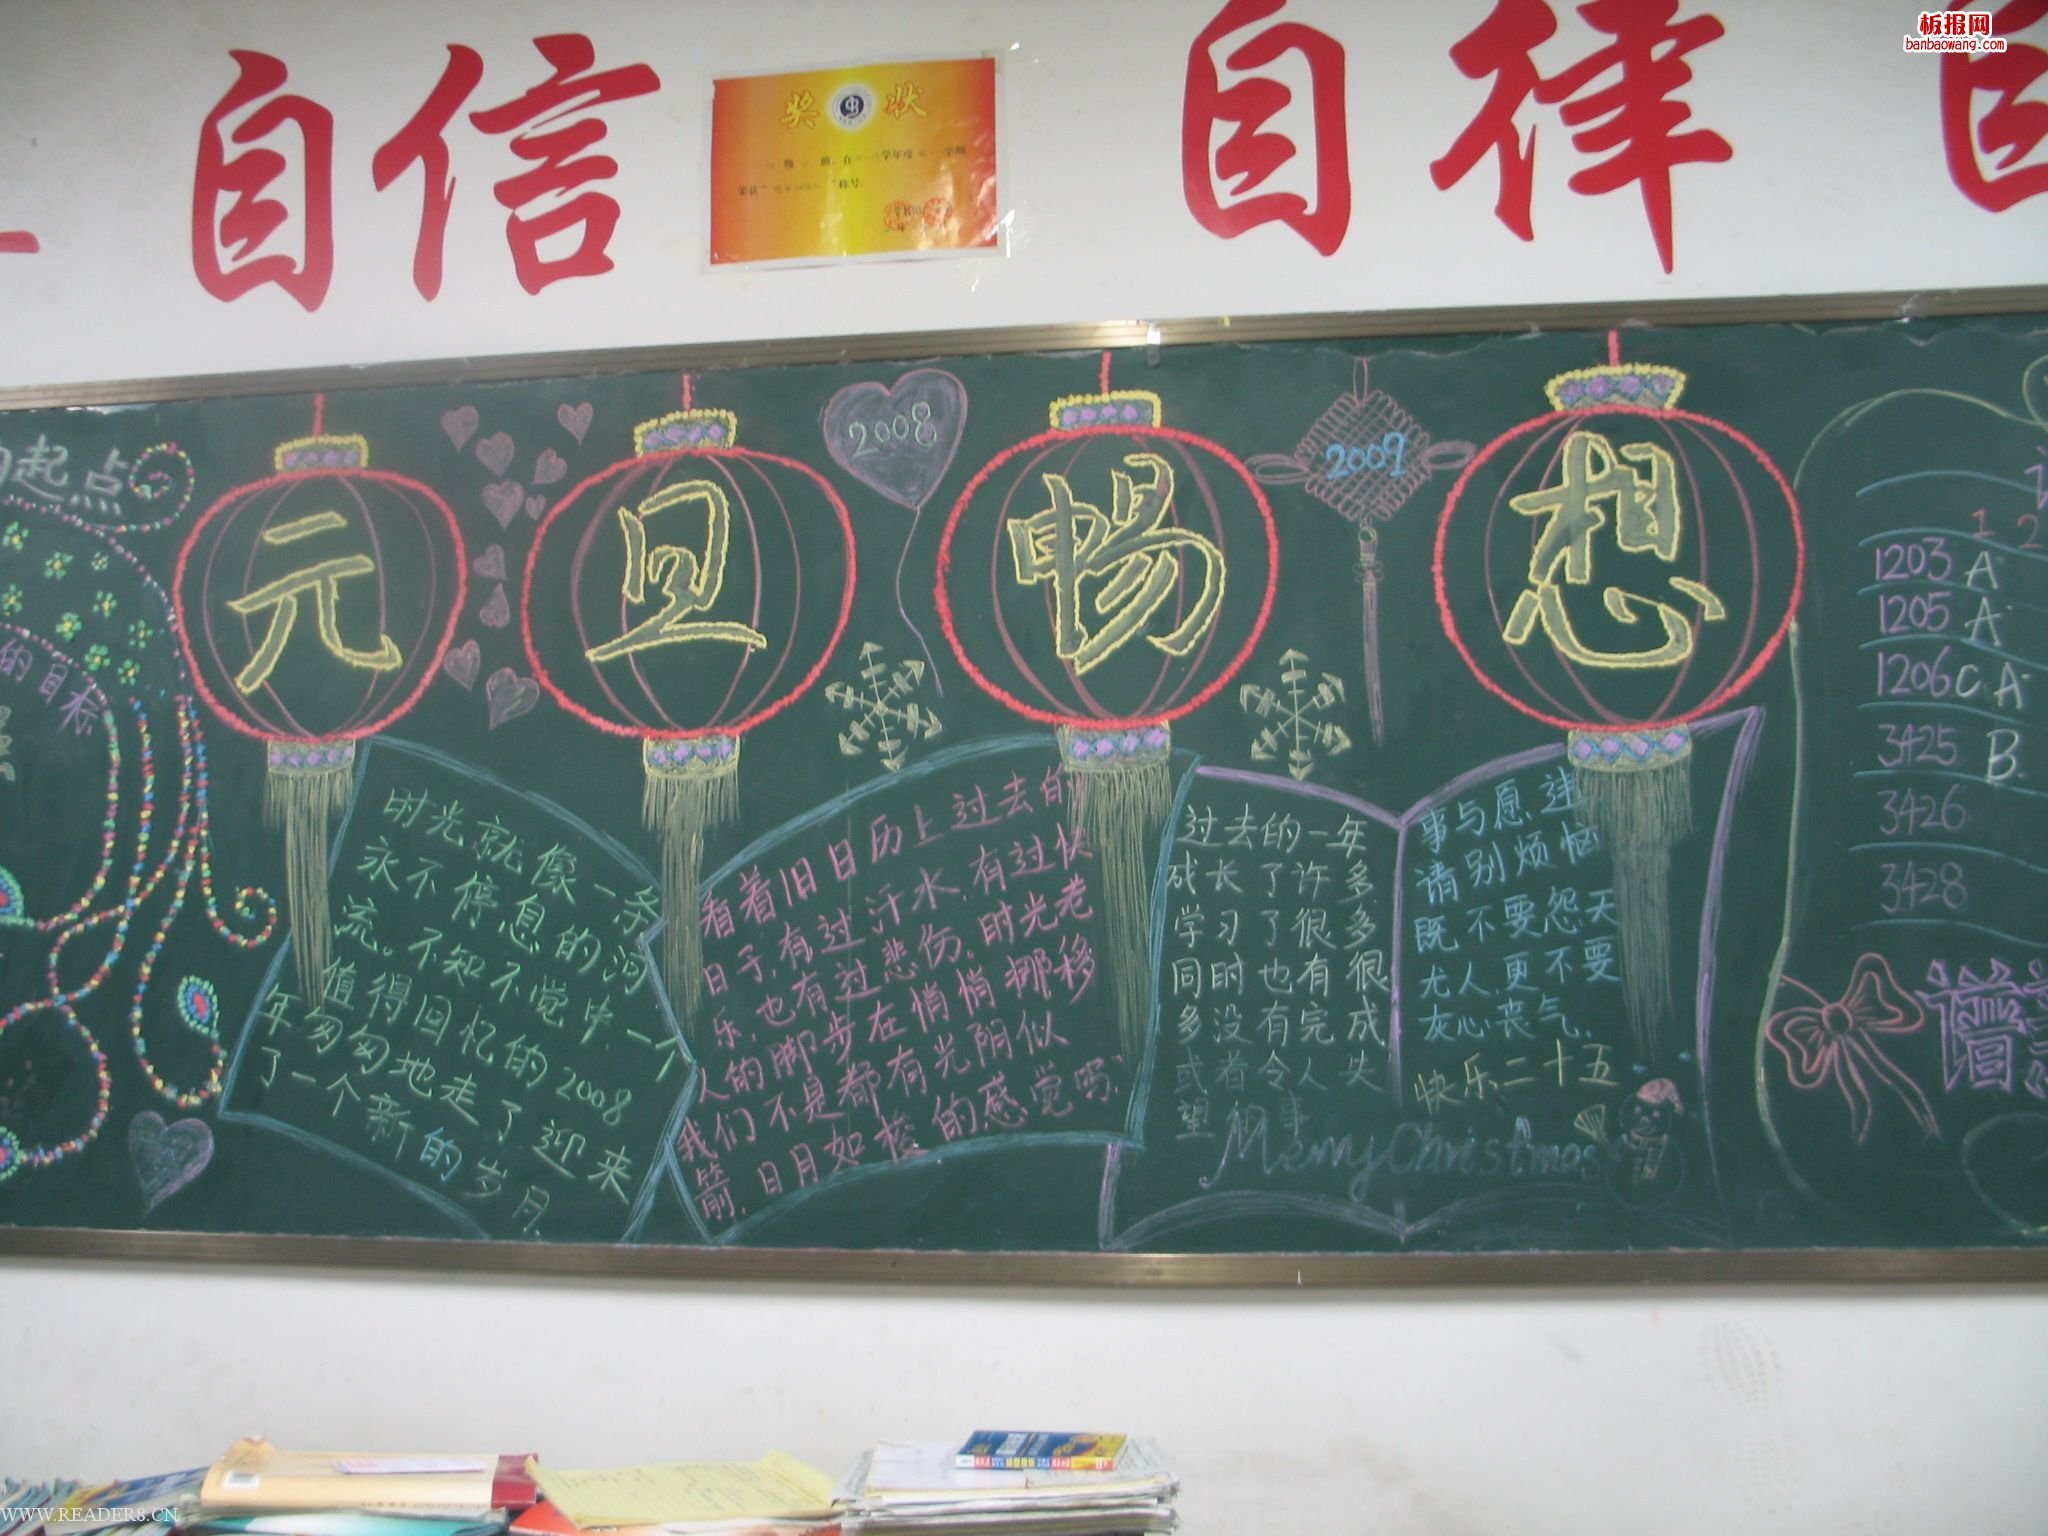 板报网
banbaowang.com
自信
自律
奖状
班，在
学年度
学期，
荣获
称号。
起点
的目标
元旦畅想
2008
2009
时光就像一条
永不停息的河
流。不知不觉中，一个
值得回忆的2008
年匆匆地走了，迎来
了一个新的岁月。
看着旧日历上过去的
日子，有过汗水，有过快
乐，也有过悲伤。时光老
人的脚步在悄悄挪移
我们不是都有光阴似
箭，日月如梭的感觉吗？
过去的一年
成长了许多
学习了很多
同时也有很
多没有完成
或者令人失
望的事
事与愿违
请别烦恼
既不要怨天
尤人，更不要
灰心丧气。
快乐二十五
Merry Christmas
1 2
1203 A
1205 A
1206 C A
3425 B
3426
3428
WWW.READER8.CN